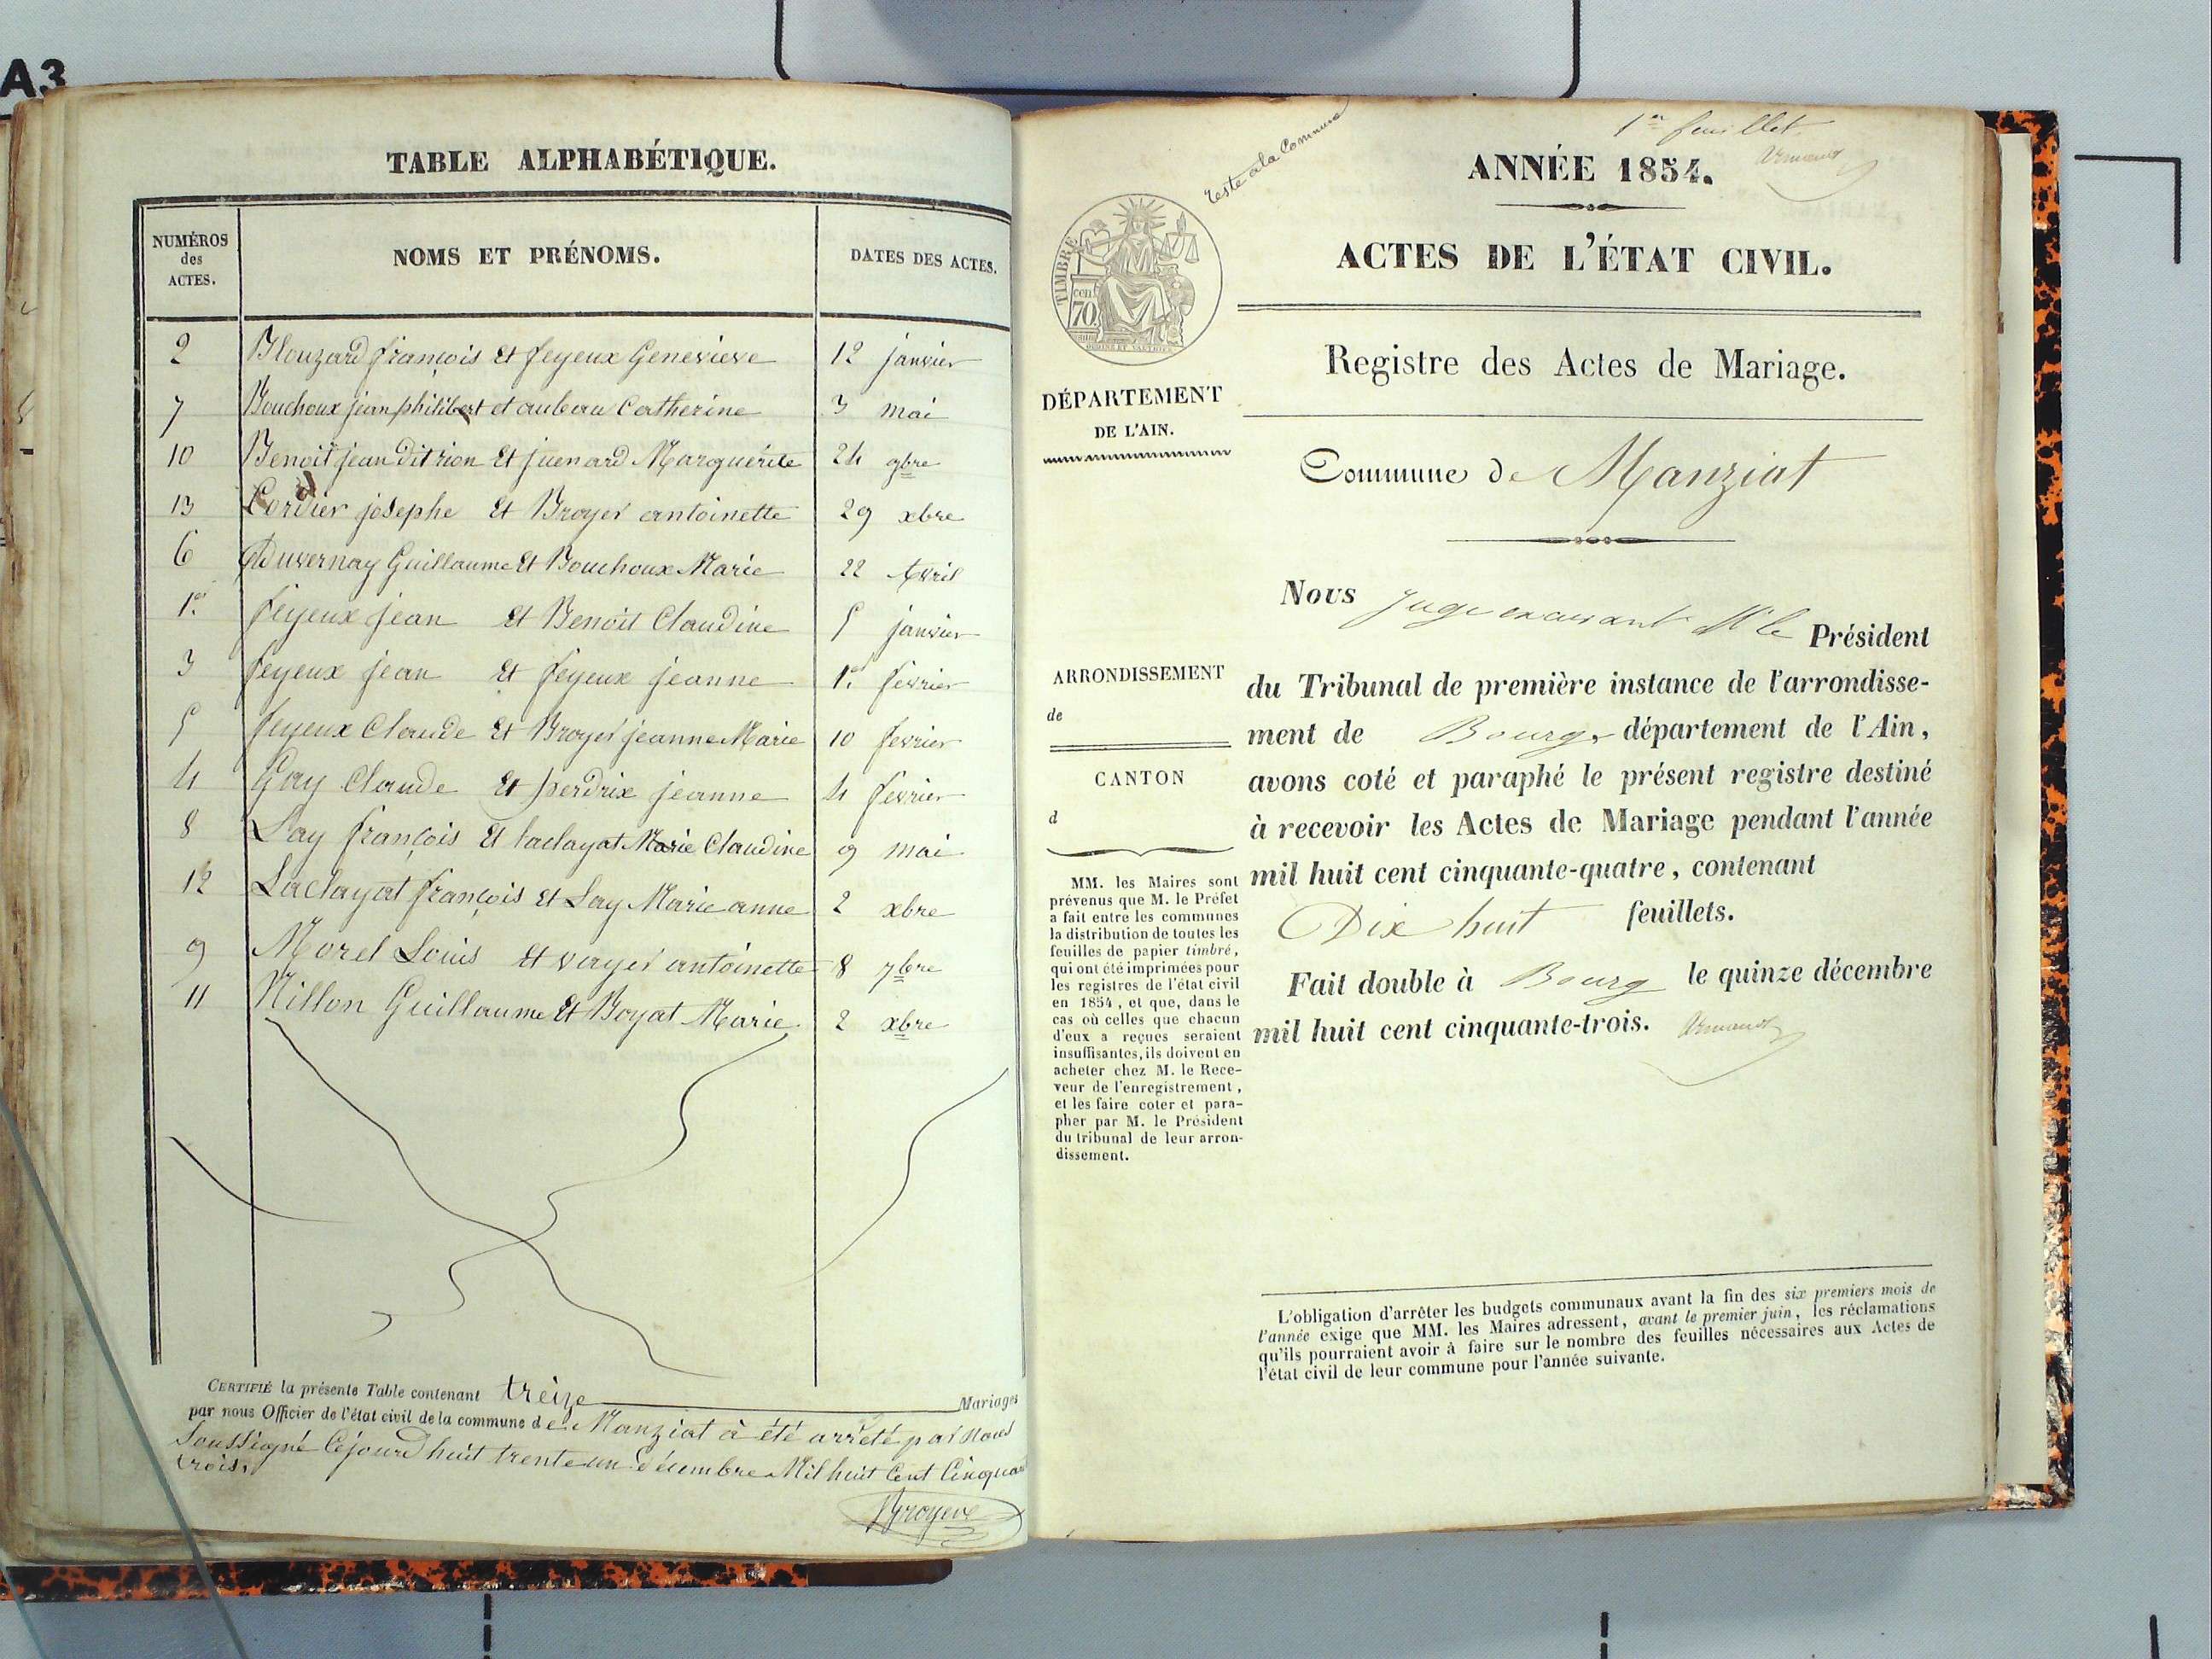 A3
TABLE ALPHABÉTIQUE.
NUMÉROS
des
ACTES.
NOMS ET PRÉNOMS.
DATES DES ACTES.
2 Blouzard françois et feyeux Genevieve 12 janvier
7 Bouchoux jean philibert et aubau Catherine 3 mai
10 Benoit jean dit rion et juenard Marguerite 24 9bre
13 Cordier josephe et Broyer antoinette 29 xbre
6 Duvernay Guillaume et Bouchoux Marie 22 Avril
1er feyeux jean et Benoit Claudine 5 janvier
3 feyeux jean et feyeux jeanne 1er fevrier
5 feyeux Claude et Broyer jeanne Marie 10 fevrier
4 Gay Claude et perdrix jeanne 4 fevrier
8 Lay françois et laclayat Marie Claudine 9 mai
12 Laclayat françois et Lay Marie anne 2 xbre
9 Morel Louis et voyer antoinette 8 7bre
11 Nillon Guillaume et Boyat Marie 2 xbre
CERTIFIÉ la présente Table contenant treize Mariages
par nous Officier de l'état civil de la commune de Manziat à été arrêté par Nous
Soussigné Cejourd huit trente un décembre Mil huit Cent Cinquan
trois.
Broyer
1er feuillet.
Armand
reste a la Commune
ANNÉE 1854.
ACTES DE L'ÉTAT CIVIL.
TIMBRE
cent
70
Registre des Actes de Mariage.
DÉPARTEMENT
DE L'AIN.
Commune de Manziat
Nous juge exerçant M le Président
ARRONDISSEMENT
de
CANTON
d
du Tribunal de première instance de l'arrondisse-
ment de Bourg, département de l'Ain,
avons coté et paraphé le présent registre destiné
à recevoir les Actes de Mariage pendant l'année
mil huit cent cinquante-quatre, contenant
Dix huit feuillets.
Fait double à Bourg le quinze décembre
mil huit cent cinquante-trois. Armand
MM. les Maires sont
prévenus que M. le Préfet
a fait entre les communes
la distribution de toutes les
feuilles de papier timbré,
qui ont été imprimées pour
les registres de l'état civil
en 1854, et que, dans le
cas où celles que chacun
d'eux a reçues seraient
insuffisantes, ils doivent en
acheter chez M. le Rece-
veur de l'enregistrement,
et les faire coter et para-
pher par M. le Président
du tribunal de leur arron-
dissement.
L'obligation d'arrêter les budgets communaux avant la fin des six premiers mois de
l'année exige que MM. les Maires adressent, avant le premier juin, les réclamations
qu'ils pourraient avoir à faire sur le nombre des feuilles nécessaires aux Actes de
l'état civil de leur commune pour l'année suivante.